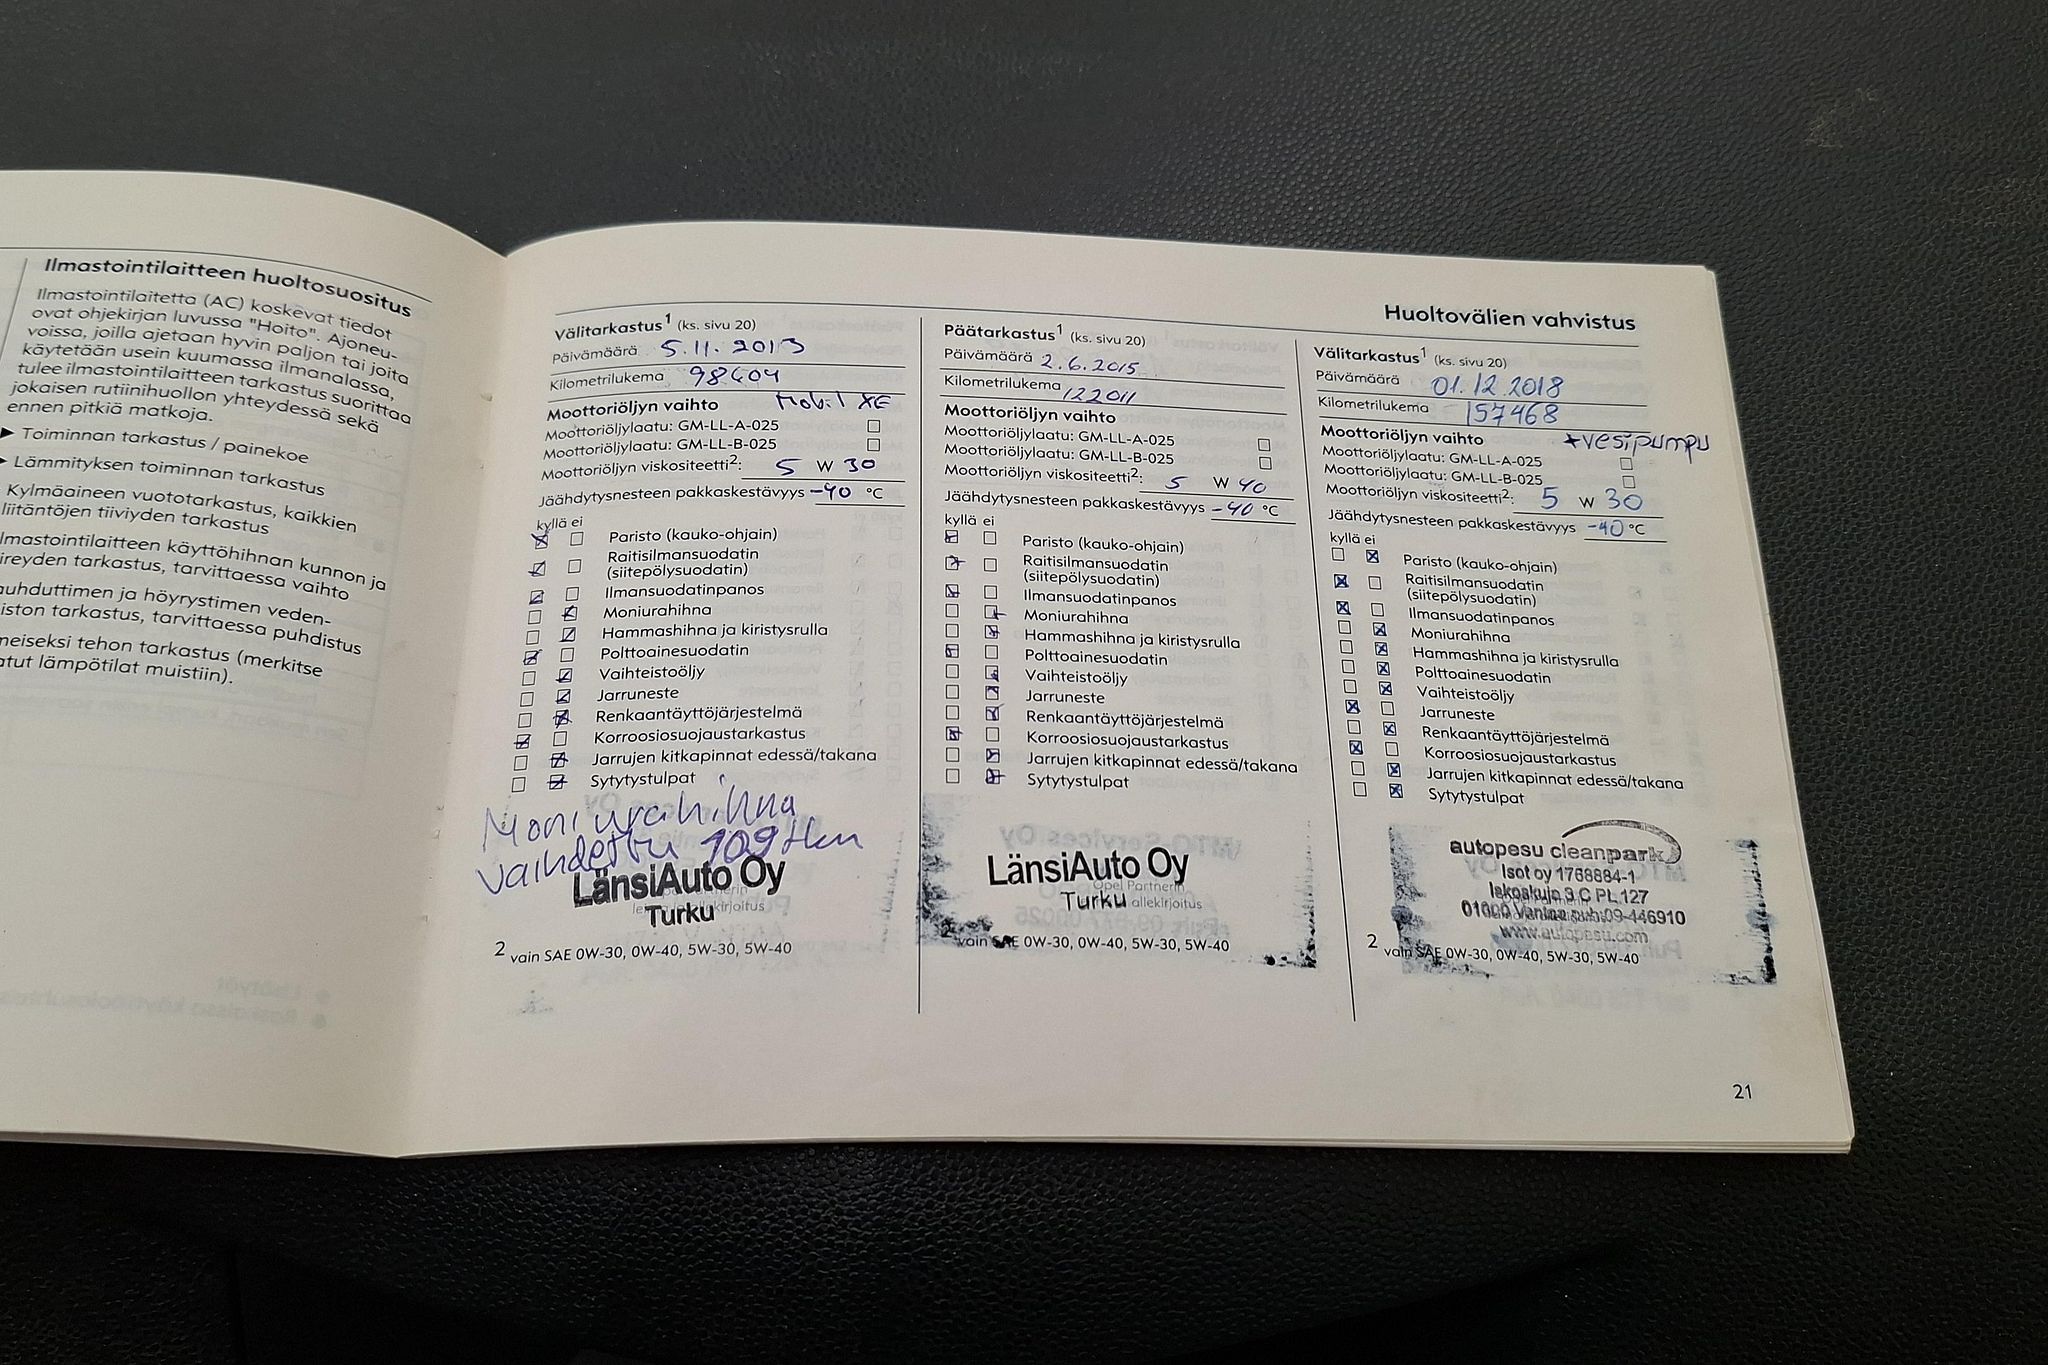 Ilmastointilaitteen huoltosuositus
Ilmastointilaitetta (AC) koskevat tiedot
ovat ohjekirjan luvussa "Hoito". Ajoneu-
voissa, joilla ajetaan hyvin paljon tai joita
käytetään usein kuumassa ilmanalassa,
tulee ilmastointilaitteen tarkastus suorittaa
jokaisen rutiinihuollon yhteydessä sekä
ennen pitkiä matkoja.
► Toiminnan tarkastus / painekoe
► Lämmityksen toiminnan tarkastus
Kylmäaineen vuototarkastus, kaikkien
liitäntöjen tiiviyden tarkastus
lmastointilaitteen käyttöhihnan kunnon ja
ireyden tarkastus, tarvittaessa vaihto
auhduttimen ja höyrystimen veden-
iston tarkastus, tarvittaessa puhdistus
meiseksi tehon tarkastus (merkitse
atut lämpötilat muistiin).
Huoltovälien vahvistus
Välitarkastus¹ (ks. sivu 20)
Päivämäärä 5.11.2013
Kilometrilukema 98604
Moottoriöljyn vaihto Mobil XE
Moottoriöljylaatu: GM-LL-A-025
Moottoriöljylaatu: GM-LL-B-025
Moottoriöljyn viskositeetti²: 5 W 30
Jäähdytysnesteen pakkaskestävyys -40 °C
kyllä ei
Paristo (kauko-ohjain)
Raitisilmansuodatin
(siitepölysuodatin)
Ilmansuodatinpanos
Moniurahihna
Hammashihna ja kiristysrulla
Polttoainesuodatin
Vaihteistoöljy
Jarruneste
Renkaantäyttöjärjestelmä
Korroosiosuojaustarkastus
Jarrujen kitkapinnat edessä/takana
Sytytystulpat
Moniurahihna
vaihdettu 109 tkm
LänsiAuto Oy
Turku
allekirjoitus
2 vain SAE 0W-30, 0W-40, 5W-30, 5W-40
Päätarkastus¹ (ks. sivu 20)
Päivämäärä 2.6.2015
Kilometrilukema 122011
Moottoriöljyn vaihto
Moottoriöljylaatu: GM-LL-A-025
Moottoriöljylaatu: GM-LL-B-025
Moottoriöljyn viskositeetti²: 5 W 40
Jäähdytysnesteen pakkaskestävyys -40 °C
kyllä ei
Paristo (kauko-ohjain)
Raitisilmansuodatin
(siitepölysuodatin)
Ilmansuodatinpanos
Moniurahihna
Hammashihna ja kiristysrulla
Polttoainesuodatin
Vaihteistoöljy
Jarruneste
Renkaantäyttöjärjestelmä
Korroosiosuojaustarkastus
Jarrujen kitkapinnat edessä/takana
Sytytystulpat
LänsiAuto Oy
Opel Partnerin
Turku allekirjoitus
2 vain SAE 0W-30, 0W-40, 5W-30, 5W-40
Välitarkastus¹ (ks. sivu 20)
Päivämäärä 01.12.2018
Kilometrilukema 157468
Moottoriöljyn vaihto +vesipumpu
Moottoriöljylaatu: GM-LL-A-025
Moottoriöljylaatu: GM-LL-B-025
Moottoriöljyn viskositeetti²: 5 W 30
Jäähdytysnesteen pakkaskestävyys -40 °C
kyllä ei
Paristo (kauko-ohjain)
Raitisilmansuodatin
(siitepölysuodatin)
Ilmansuodatinpanos
Moniurahihna
Hammashihna ja kiristysrulla
Polttoainesuodatin
Vaihteistoöljy
Jarruneste
Renkaantäyttöjärjestelmä
Korroosiosuojaustarkastus
Jarrujen kitkapinnat edessä/takana
Sytytystulpat
autopesu cleanpark
Isot oy 1768884-1
Iskoskuja 3 C PL 127
01600 Vantaa puh 09-446910
www.autopesu.com
2 vain SAE 0W-30, 0W-40, 5W-30, 5W-40
21